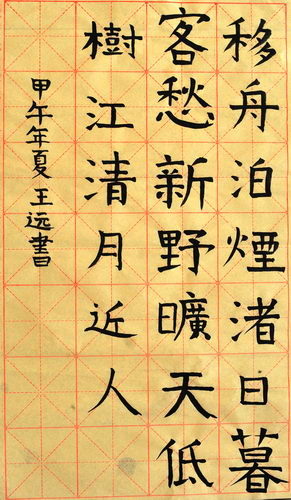 移舟泊煙渚日暮
客愁新野曠天低
樹江清月近人
甲午年夏王远書